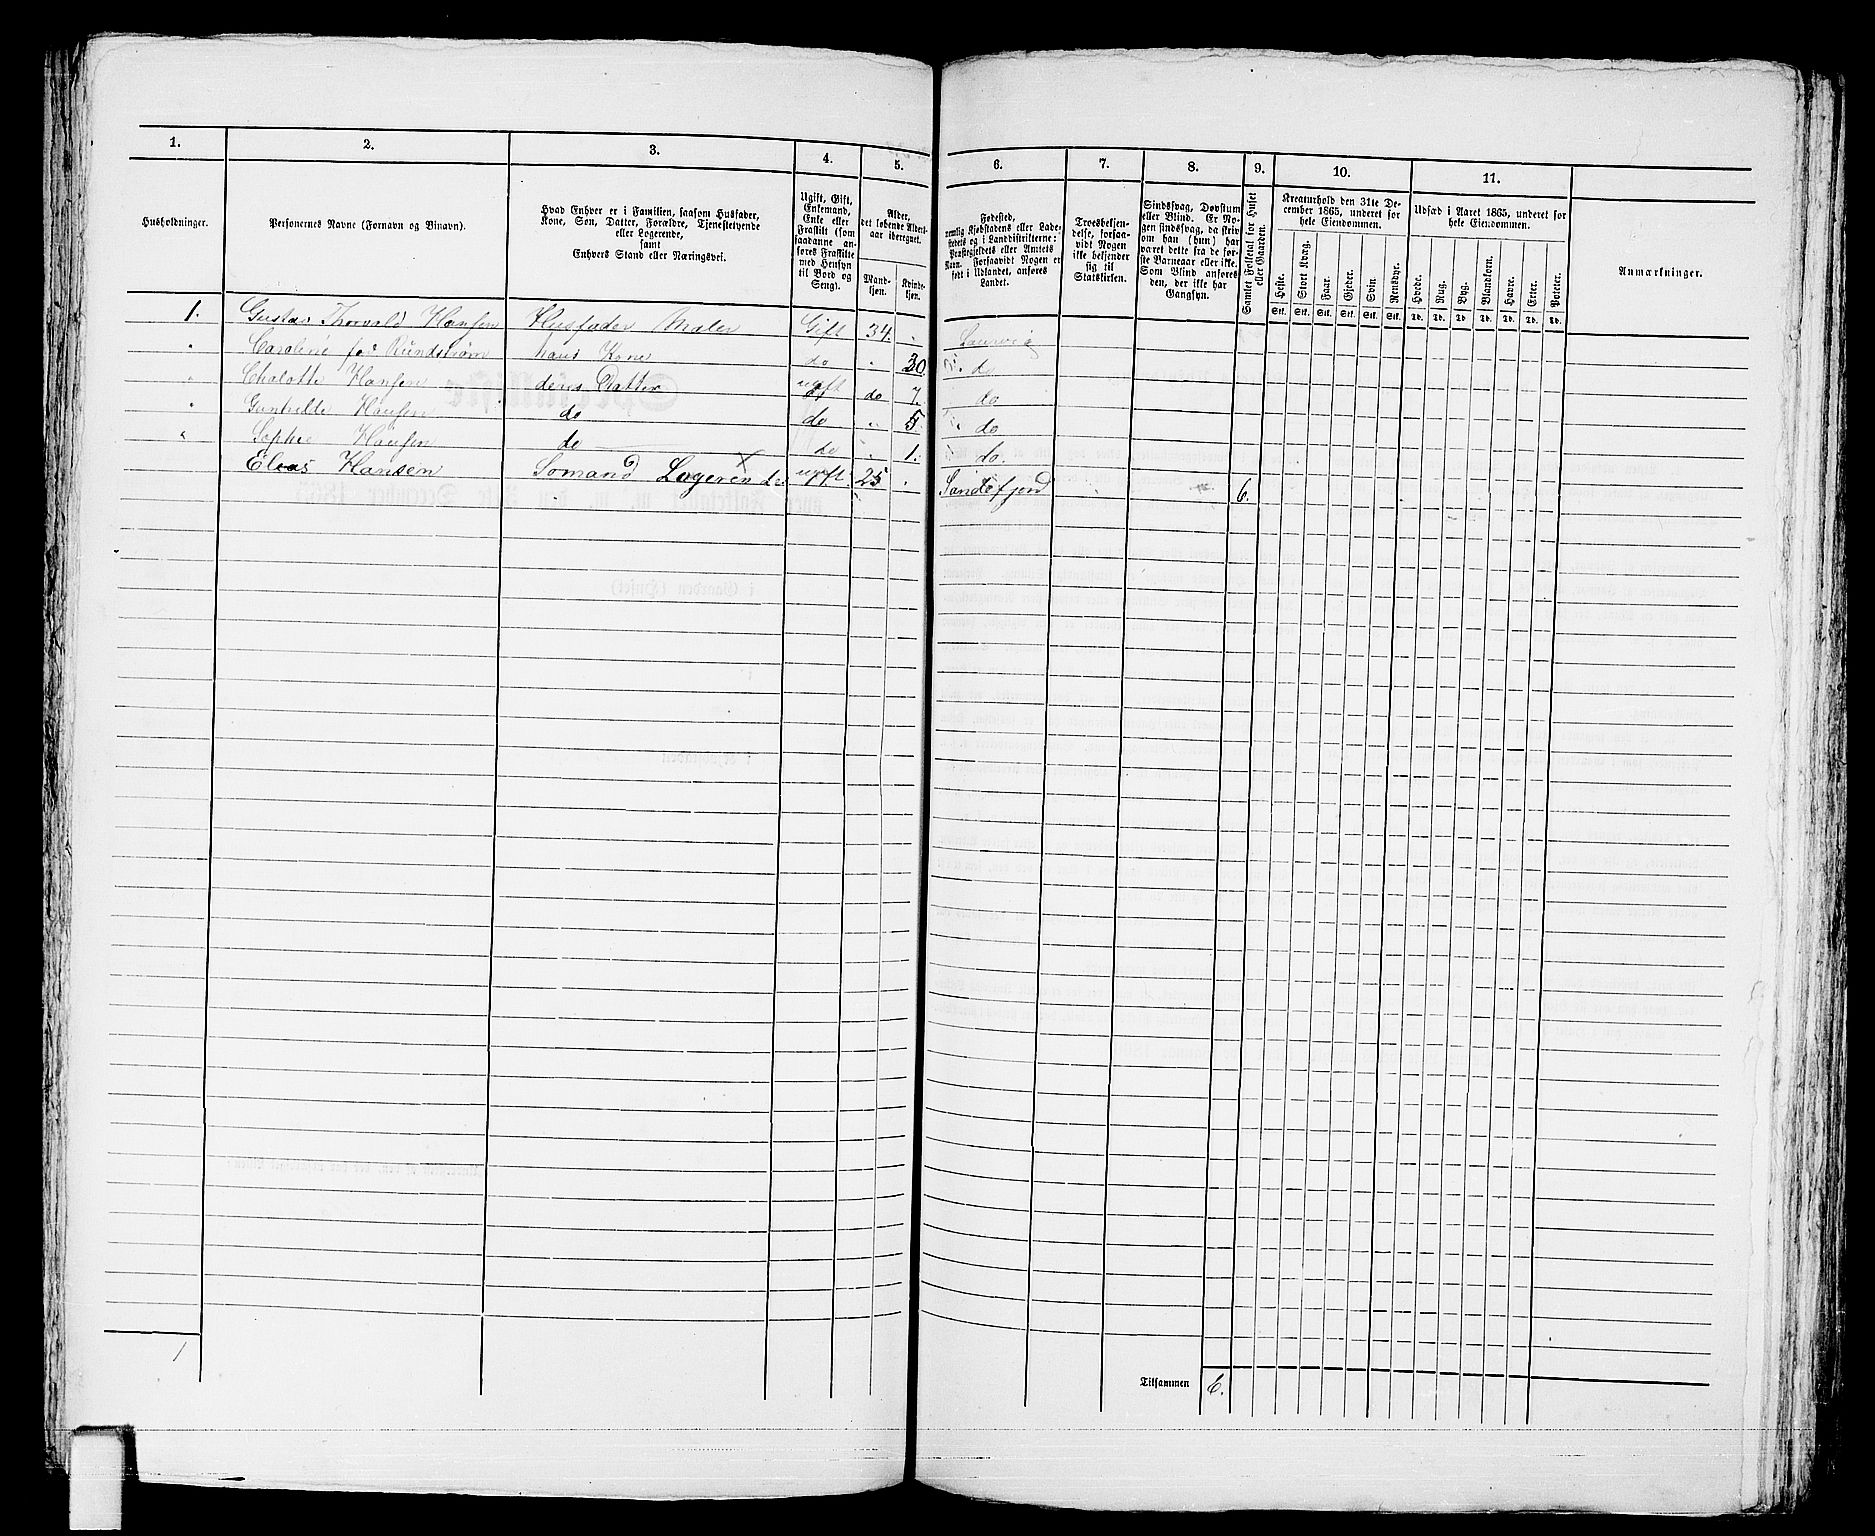 1. 2. 3. 4. 5. 6. 7. 8. 9. 10. 11.
Husholdninger.
Personernes Navne (Fornavn og Binavn).
Hvad Enhver er i Familien, saasom Husfader,
Kone, Søn, Datter, Forældre, Tjenestetyende
eller Logerende,
samt
Enhvers Stand eller Næringsvei.
Ugift, Gift,
Enkemand,
Enke eller
Fraskilt (som
saadanne an-
føres Fraskilte
med Hensyn
til Bord og
Seng).
Alder,
det løbende Alders-
aar iberegnet.
Mand-
kjøn.
Kvinde-
kjøn.
Fødested,
nemlig Kjøbstadens eller Lade-
stedets og i Landdistrikterne:
Præstegjeldets eller Amtets
Navn. Forsaavidt Nogen er
født i Udlandet, anføres
Landet.
Troesbekjen-
delse, forsaa-
vidt Nogen
ikke bekjender
sig til
Statskirken.
Sindssvag, Døvstum
eller Blind. Er No-
gen sindssvag, da skriv
om han (hun) har
været dette fra de før-
ste Barneaar eller ikke.
Som Blind anføres
den, der ikke har
Gangsyn.
Samlet Folketal for Huset
eller Gaarden.
Kreaturhold den 31te De-
cember 1865, underet for
hele Eiendommen.
Heste. Stort Kvæg. Faar. Gjeder. Svin. Rensdyr.
Stk. Stk. Stk. Stk. Stk. Stk.
Udsæd i Aaret 1865, underet for
hele Eiendommen.
Hvede. Rug. Byg. Blandkorn. Havre. Erter. Poteter.
Td. Td. Td. Td. Td. Td. Td.
Anmærkninger.
1. Gustav Thorvald Hansen Husfader Maler Gift 34. Laurvig
" Caroline fød Rundstrøm hans Kone do " 30 do
" Chalotte Hansen deres Datter ugift do 7. do
" Gunhilde Hansen do do " 5 do
" Sophie Hansen do do " 1. do
Elias Hansen Somand Logerende ugift 25 Sandefjord 6.
1
Tilsammen 6.